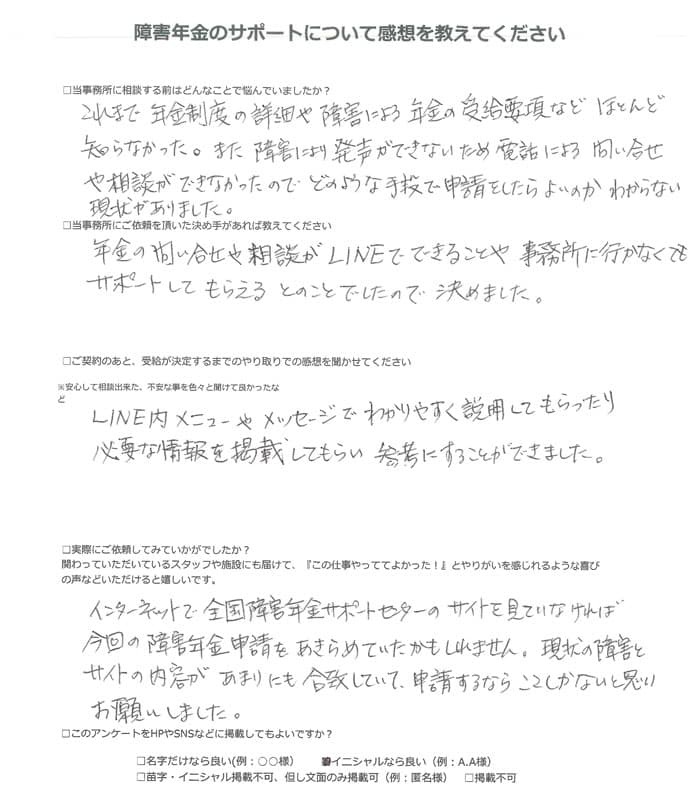 障害年金のサポートについて感想を教えてください
□当事務所に相談する前はどんなことで悩んでいましたか？
これまで年金制度の詳細や障害による年金の受給要項など ほとんど
知らなかった。また障害により発声ができないため電話による問い合せ
や相談ができなかったのでどのような手段で申請をしたらよいのか わからない
現状がありました。
□当事務所にご依頼を頂いた決め手があれば教えてください
年金の問い合せや相談がLINEでできることや事務所に行かなくても
サポートしてもらえるとのことでしたので決めました。
□ご契約のあと、受給が決定するまでのやり取りでの感想を聞かせてください
※安心して相談出来た、不安な事を色々と聞けて良かったな
ど
LINE内メニューやメッセージでわかりやすく説明してもらったり
必要な情報を掲載してもらい参考にすることができました。
□実際にご依頼してみていかがでしたか？
関わっていただいているスタッフや施設にも届けて、『この仕事やっててよかった！』とやりがいを感じれるような喜び
の声などいただけると嬉しいです。
インターネットで全国障害年金サポートセンターのサイトを見ていなければ
今回の障害年金申請をあきらめていたかもしれません。現状の障害と
サイトの内容があまりにも合致していて、申請するならここしかないと思い
お願いしました。
□このアンケートをHPやSNSなどに掲載してもよいですか？
□名字だけなら良い(例：○○様） ■イニシャルなら良い（例：A.A様）
□苗字・イニシャル掲載不可、但し文面のみ掲載可（例：匿名様） □掲載不可